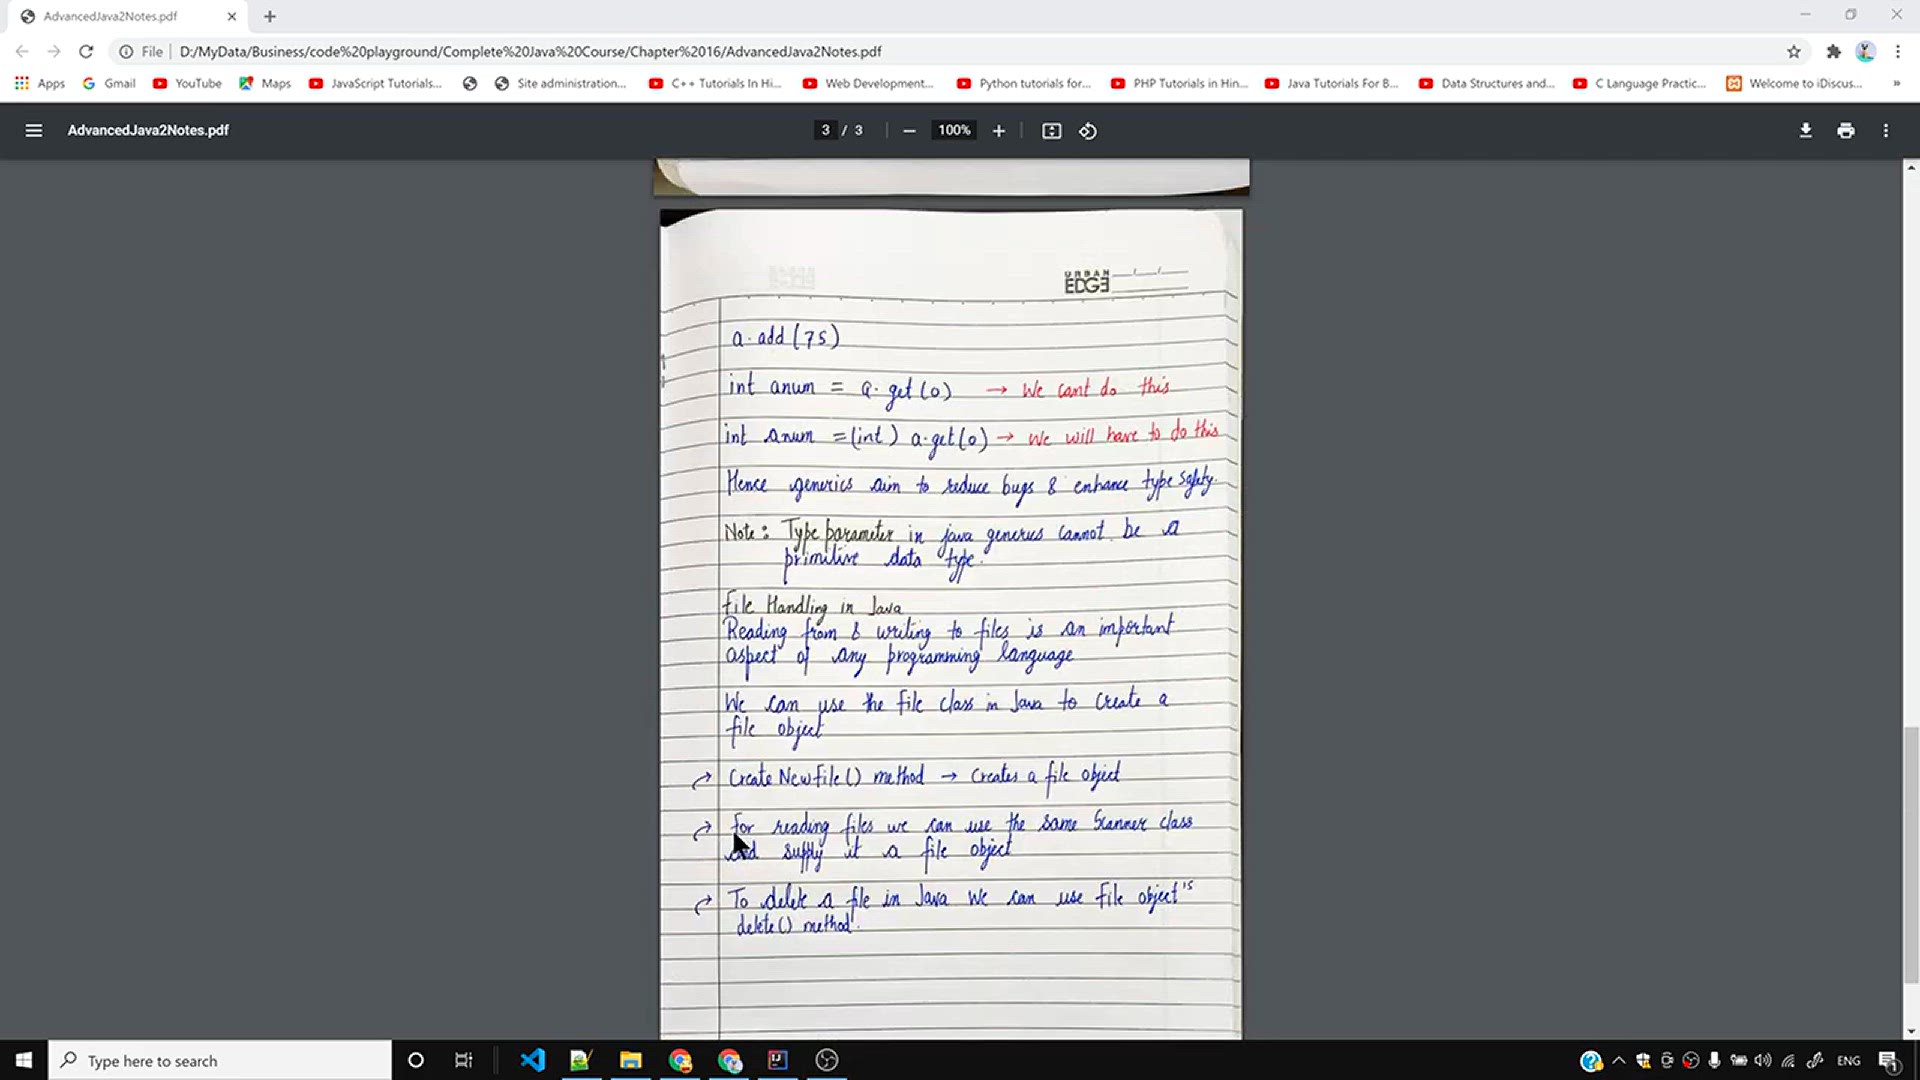 AdvancedJava2Notes.pdf
File D:/MyData/Business/code%20playground/Complete%20Java%20Course/Chapter%2016/AdvancedJava2Notes.pdf
Apps Gmail YouTube Maps JavaScript Tutorials... Site administration... C++ Tutorials In Hi... Web Development... Python tutorials for... PHP Tutorials in Hin... Java Tutorials For B... Data Structures and... C Language Practic... Welcome to iDiscus... »
AdvancedJava2Notes.pdf 3 / 3 − 100% +
URBAN
EDGE
a.add(75)
int anum = a.get(0) → We cant do this
int anum =(int) a.get(0) → We will have to do this
Hence generics aim to reduce bugs & enhance type safety.
Note: Type parameter in java generics cannot be a
primitive data type.
File Handling in Java
Reading from & writing to files is an important
aspect of any programming language
We can use the file class in Java to create a
file object
CreateNewFile() method → Creates a file object
for reading files we can use the same Scanner class
and supply it a file object
To delete a file in Java We can use File object's
delete() method.
Type here to search
ENG